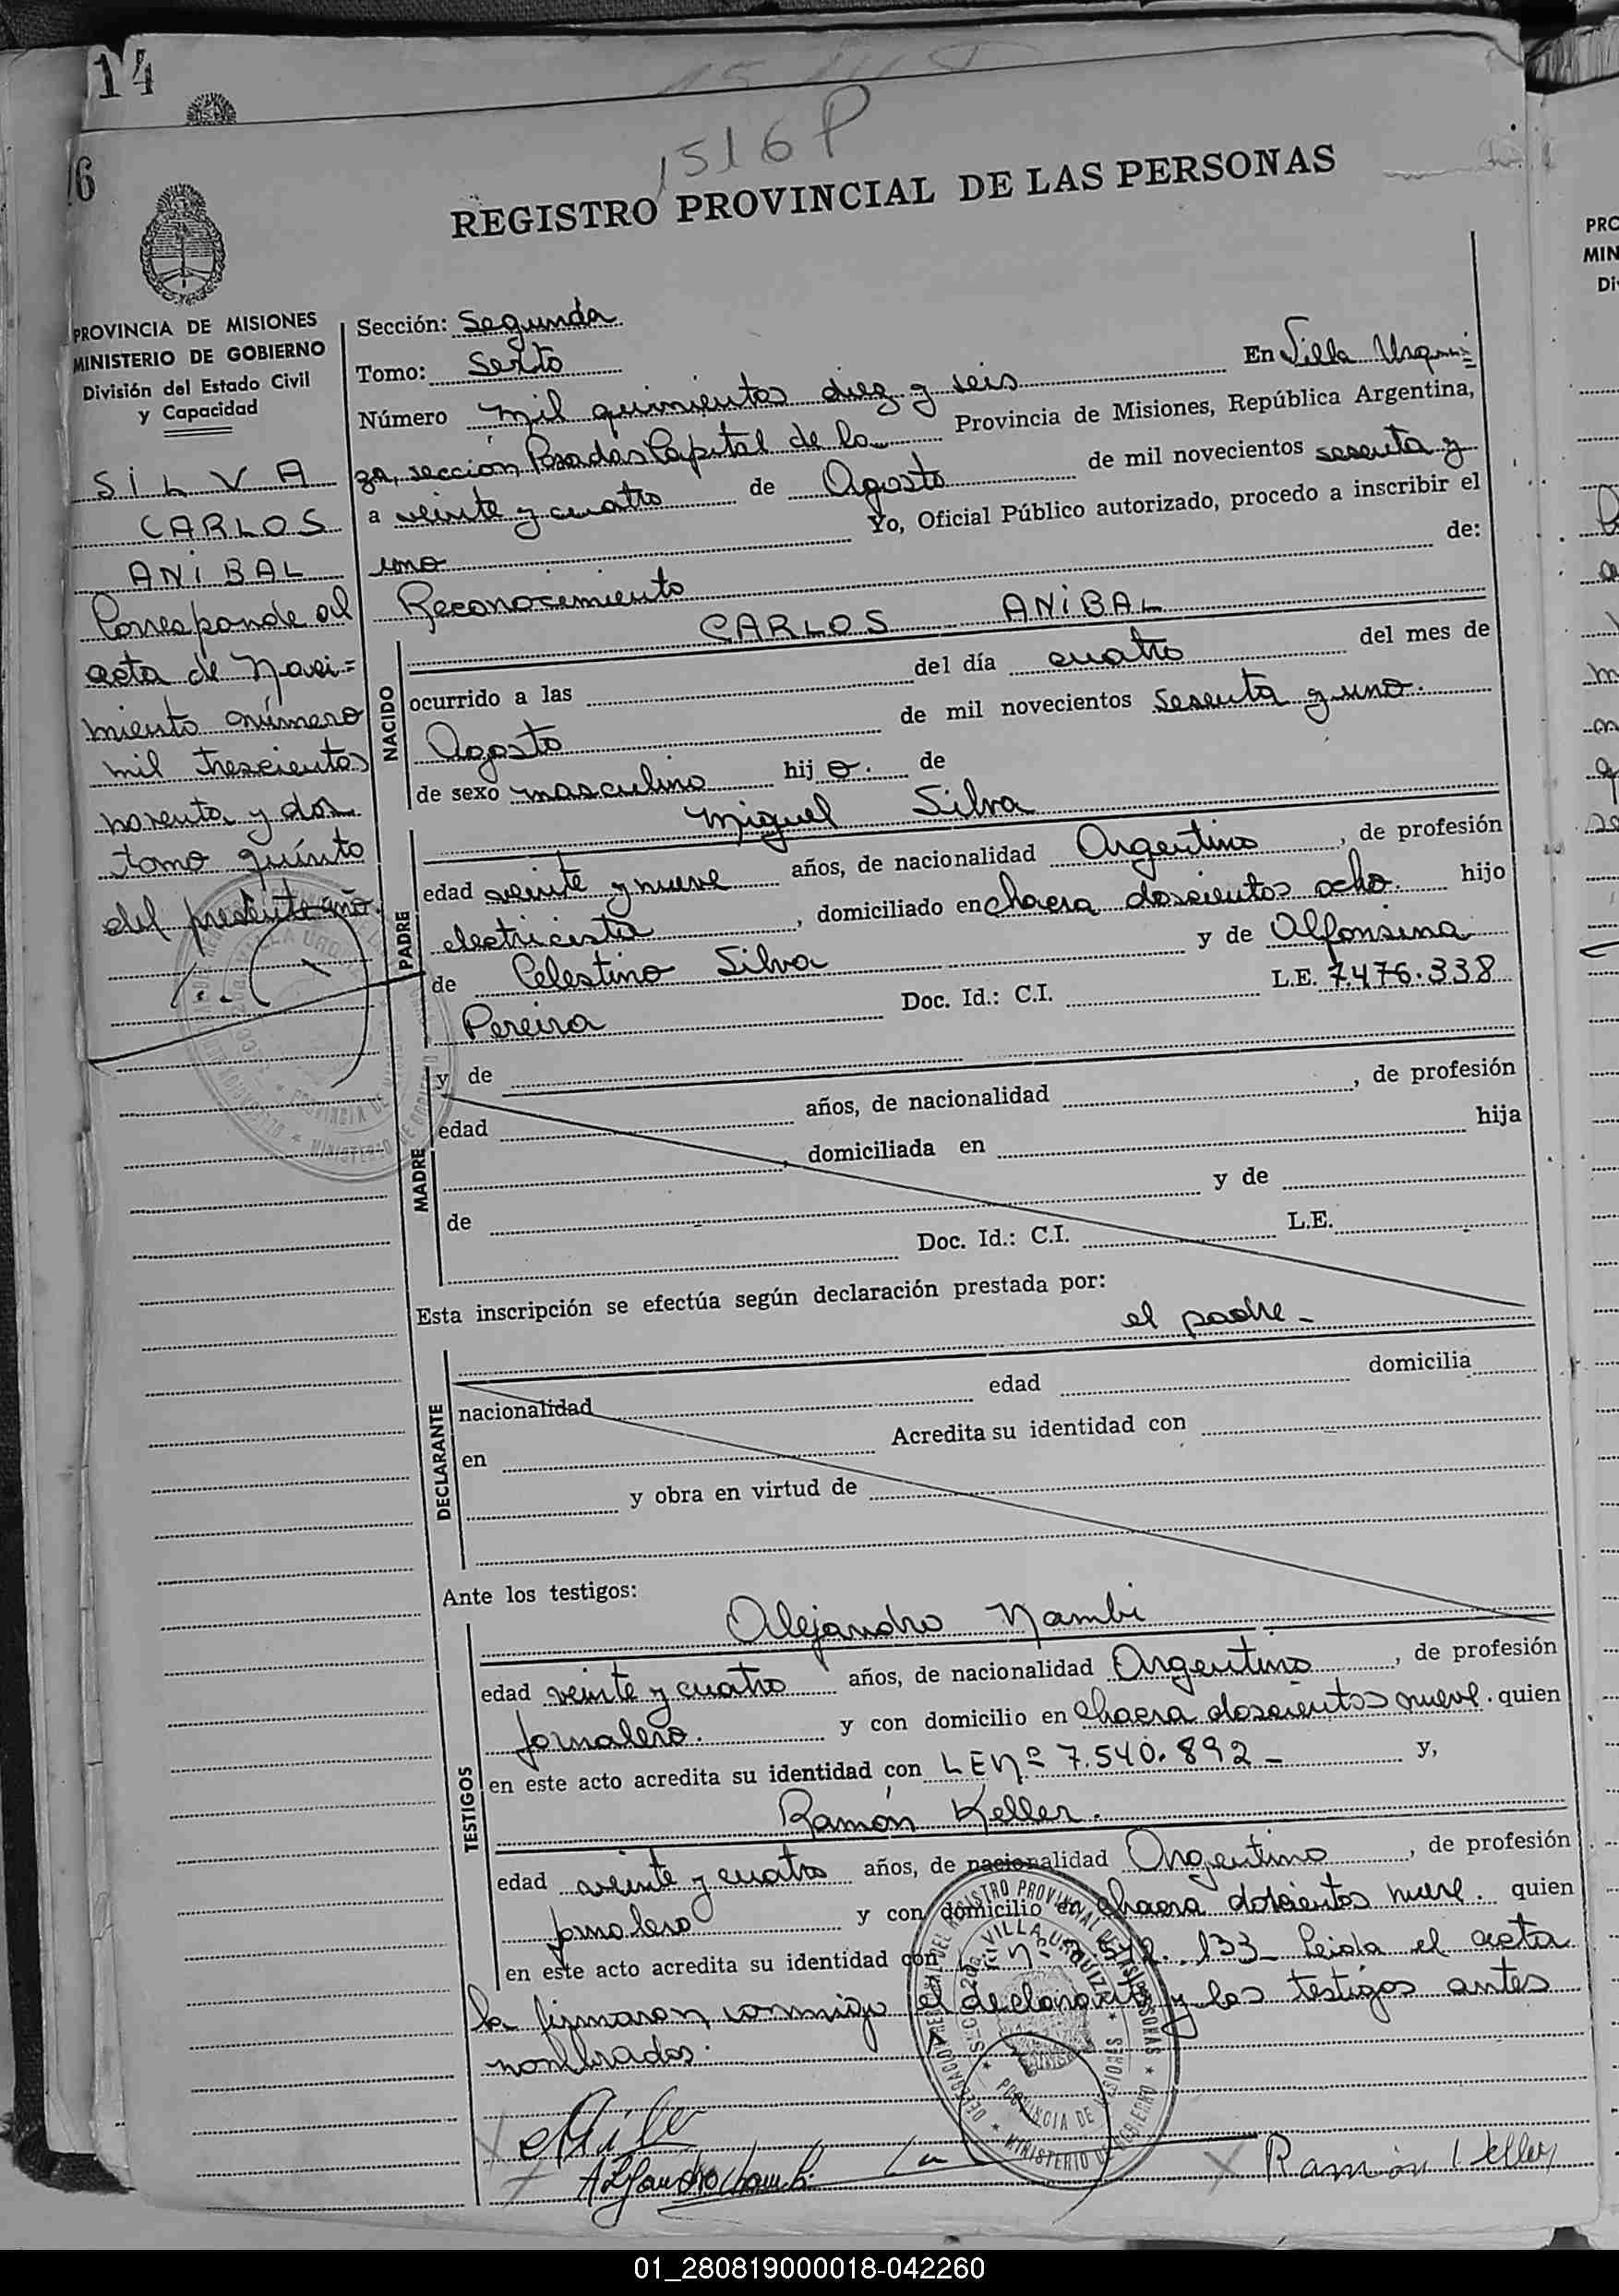 14
16
1516 P
REGISTRO PROVINCIAL DE LAS PERSONAS
PROVINCIA DE MISIONES
MINISTERIO DE GOBIERNO
División del Estado Civil
y Capacidad
SILVA
CARLOS
ANIBAL
Corresponde al
acta de Naci=
miento número
mil trescientos
noventa y dos
tomo quinto
del presente año.
Sección: Segunda
Tomo: Sexto
Número mil quinientos diez y seis En Villa Urqui=
za, sección Posadas Capital de la Provincia de Misiones, República Argentina,
a veinte y cuatro de Agosto de mil novecientos sesenta y
uno Yo, Oficial Público autorizado, procedo a inscribir el
Reconocimiento de:
CARLOS ANIBAL
NACIDO
ocurrido a las del día cuatro del mes de
Agosto de mil novecientos sesenta y uno.
de sexo masculino hijo. de
Miguel Silva
PADRE
edad veinte y nueve años, de nacionalidad Argentino, de profesión
electricista, domiciliado en chacra doscientos ocho. hijo
de Celestino Silva y de Alfonsina
Pereira Doc. Id.: C.I. L.E. 7.476.338
MADRE
y de
edad años, de nacionalidad , de profesión
, domiciliada en hija
de y de
Doc. Id.: C.I. L.E.
Esta inscripción se efectúa según declaración prestada por:
el padre -
DECLARANTE
nacionalidad edad domicilia
en Acredita su identidad con
y obra en virtud de
Ante los testigos:
Alejandro Nambi
TESTIGOS
edad veinte y cuatro años, de nacionalidad Argentino, de profesión
jornalero. y con domicilio en chacra doscientos nueve. quien
en este acto acredita su identidad con LE Nº 7.540.892 - y,
Ramón Keller.
edad veinte y cuatro años, de nacionalidad Argentino, de profesión
jornalero y con domicilio en chacra doscientos nueve. quien
en este acto acredita su identidad con 133 - Leida el acta
la firmaron conmigo el declarante y los testigos antes
nombrados.
Ramón Keller
PRO
MIN
Di
01_280819000018-042260